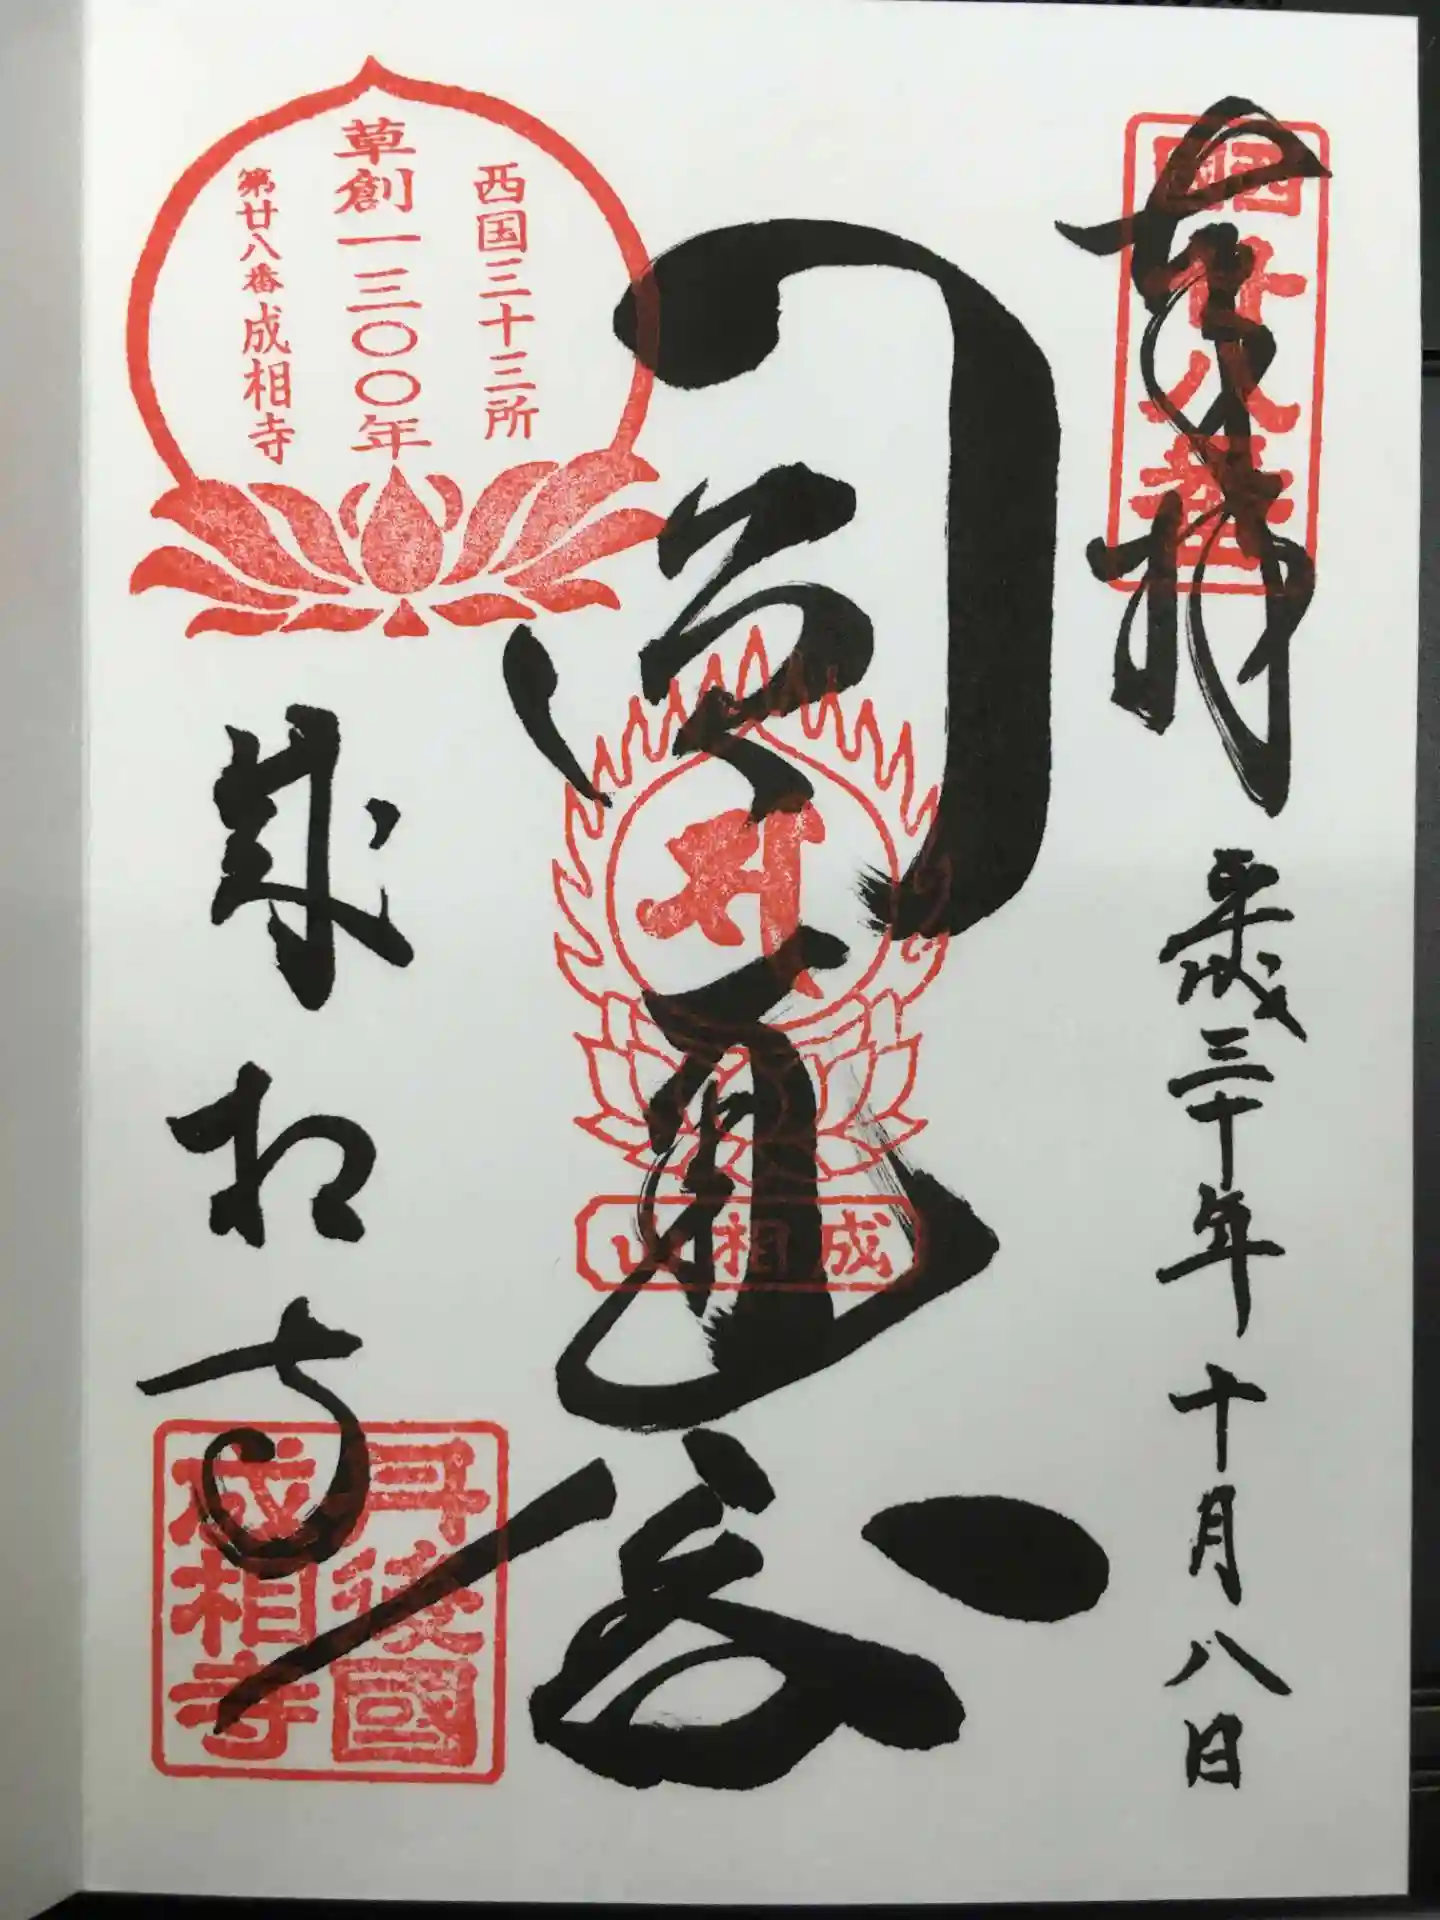 奉拝
西國廿八番
平成三十年十月八日
圓通閣
成相山
西国三十三所
草創一三〇〇年
第廿八番成相寺
成相寺
丹後國
成相寺